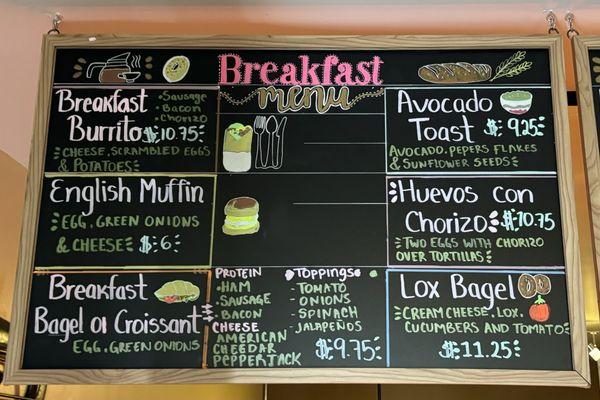 Breakfast
menu
Breakfast
Burrito $10.75
• Sausage
• Bacon
• Chorizo
• Cheese, Scrambled Eggs
& Potatoes •
English Muffin
• Egg, Green Onions
& Cheese • $6
Breakfast
Bagel or Croissant
Egg, Green Onions
Protein
• Ham
• Sausage
• Bacon
Cheese
American
Cheedar
Pepperjack
Toppings
• Tomato
• Onions
• Spinach
• Jalapeños
$9.75
Avocado
Toast $9.25
Avocado, Pepers Flakes
& Sunflower Seeds
Huevos con
Chorizo $10.75
Two Eggs with Chorizo
over Tortillas
Lox Bagel
Cream Cheese, Lox,
Cucumbers and Tomato
$11.25